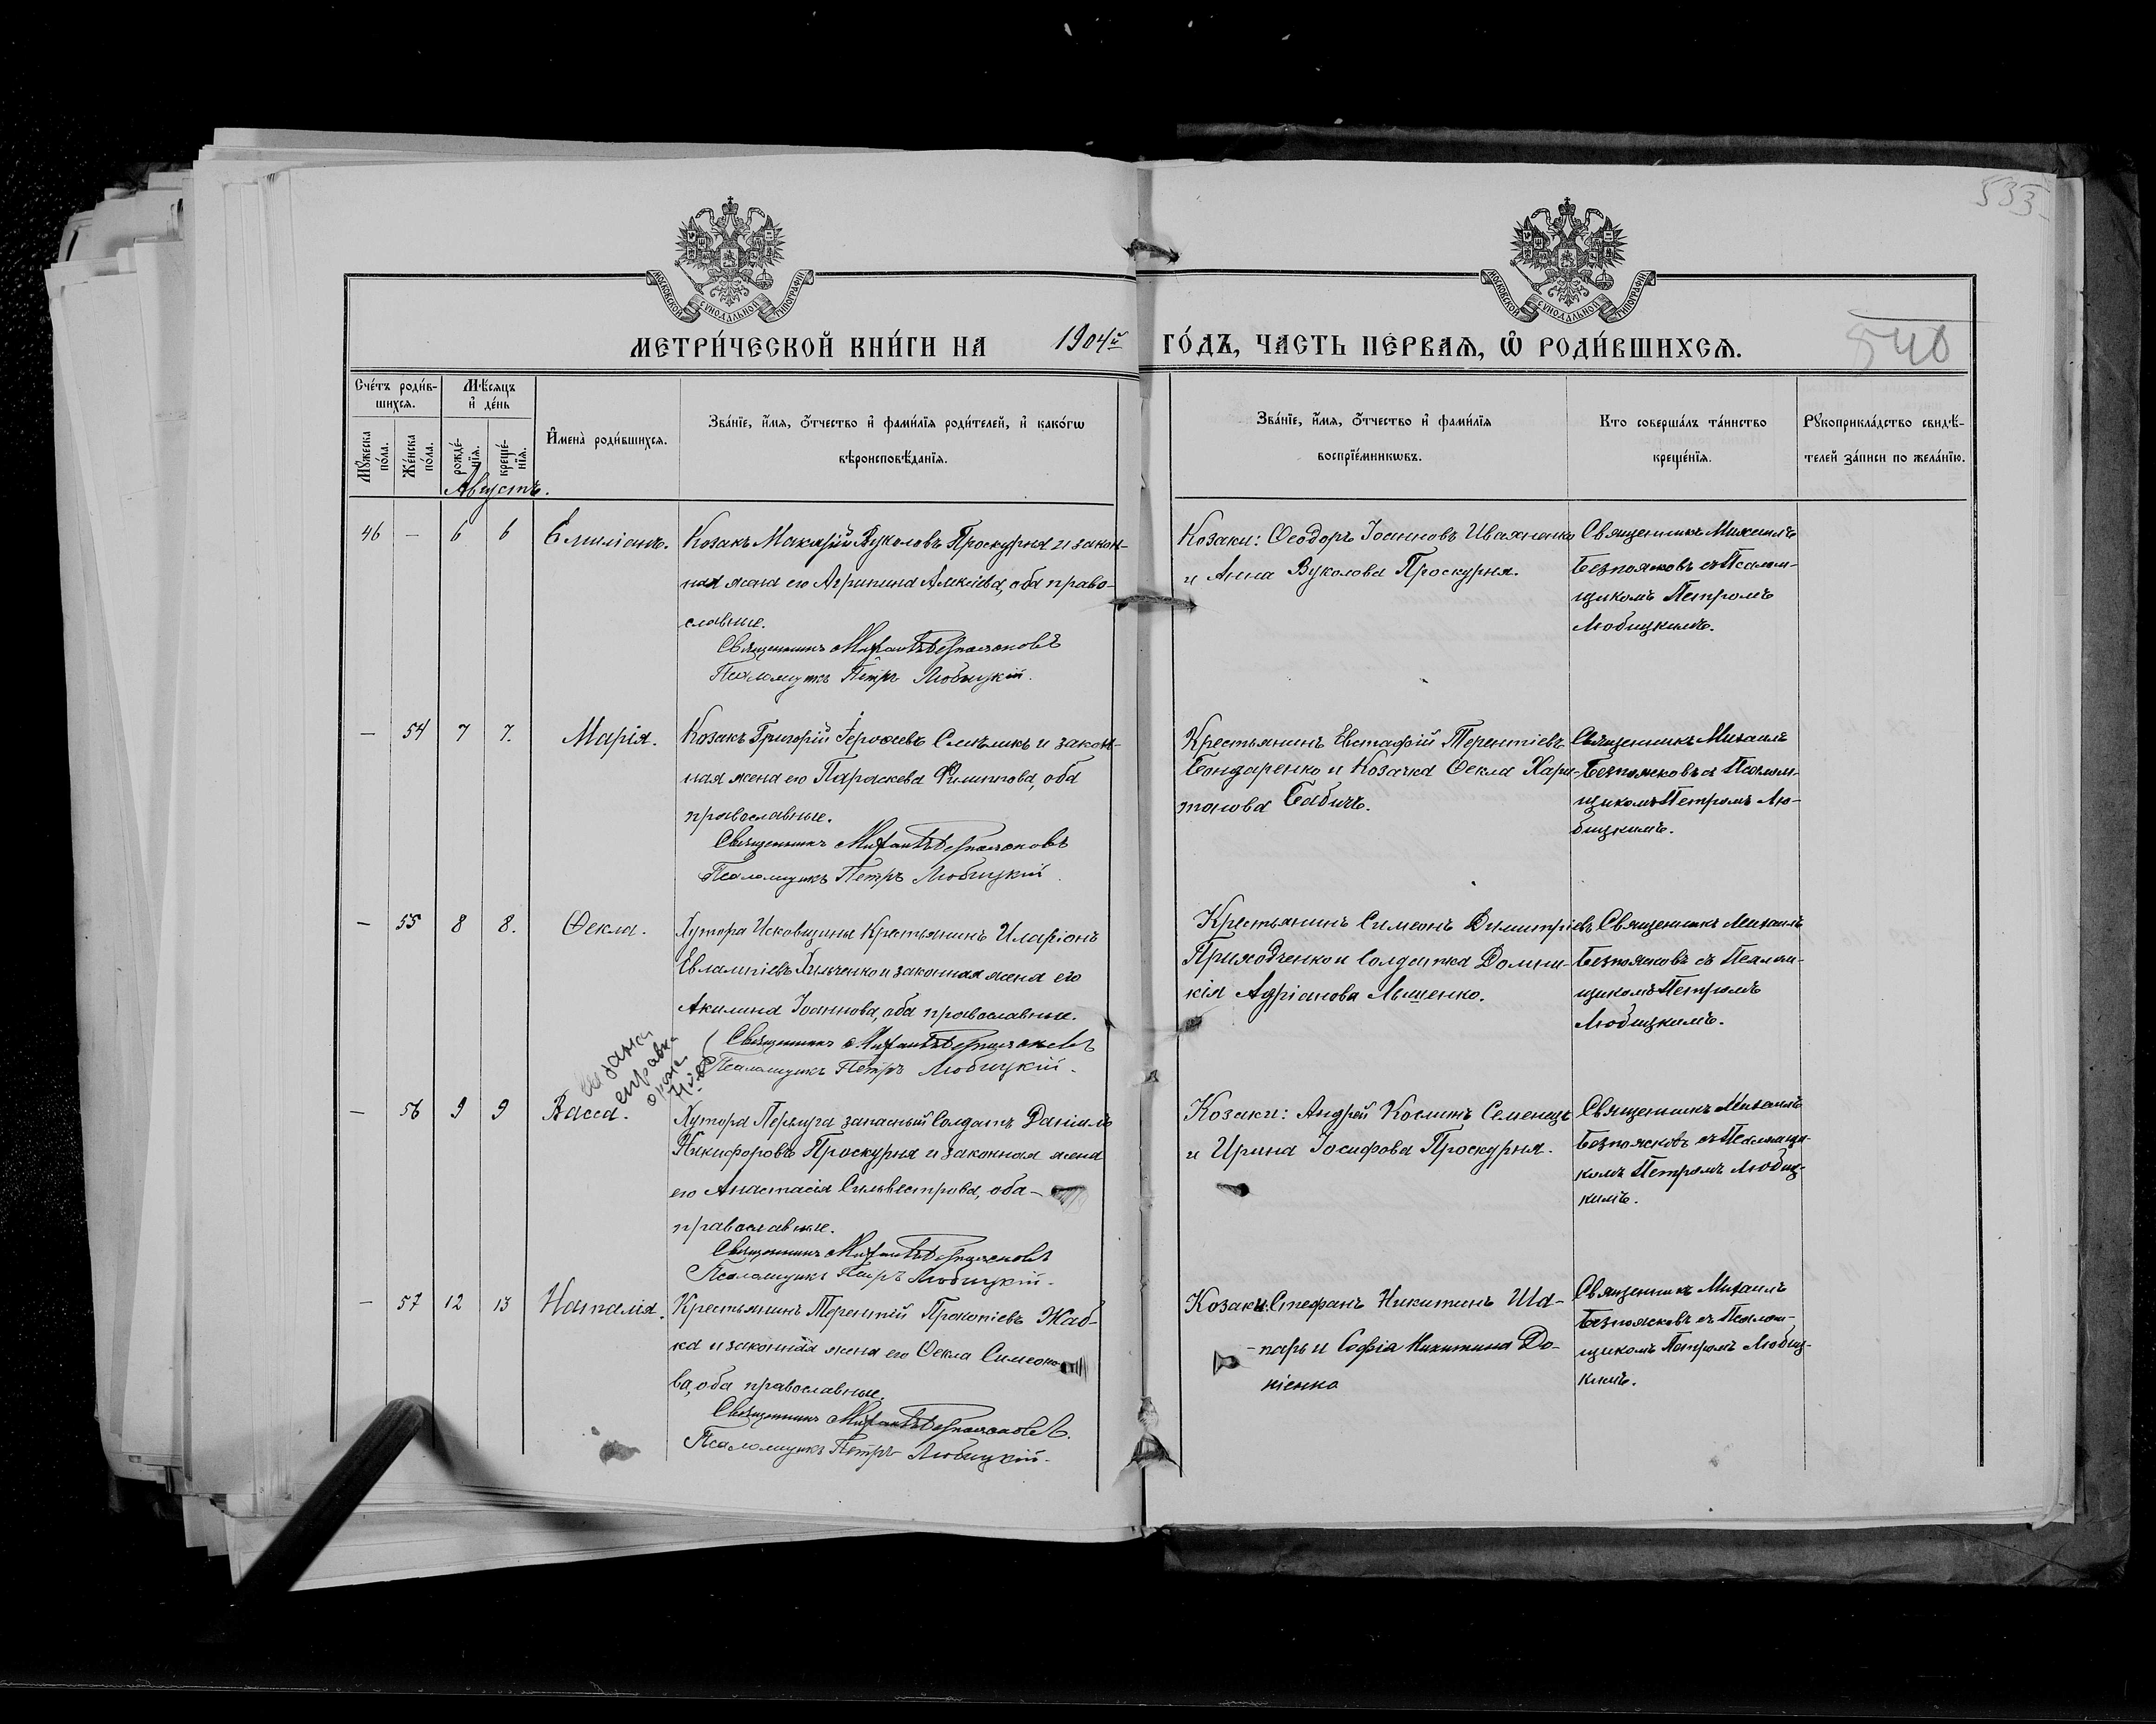 533
МОСКОВСКОЙ СѴНОДАЛЬНОЙ ТИПОГРАФІИ
МОСКОВСКОЙ СѴНОДАЛЬНОЙ ТИПОГРАФІИ
МЕТРИ́ЧЕСКОЙ КНИ́ГИ НА 1904й ГО́ДЪ, ЧАСТЬ ПЕ́РВАѦ, Ѽ РОДИ́ВШИХСѦ.
540
Сче́тъ роди́в-
шихсѧ.
Мѣ́сѧцъ
и҆ де́нь
Мꙋ́жеска
по́ла.
Же́нска
по́ла.
рожде́-
нїѧ.
креще́-
нїѧ.
И҆мена̀ роди́вшихсѧ.
Зва́нїе, и҆́мѧ, ѻ҆́тчество и҆ фами́лїѧ роди́телей, и҆ како́гѡ
вѣроисповѣ́данїѧ.
Зва́нїе, и҆́мѧ, ѻ҆́тчество и҆ фами́лїѧ
воспрїе́мникѡвъ.
Кто соверша́лъ та́инство
креще́нїѧ.
Рꙋкоприкла́дство свидѣ́-
телей за́писи по жела́нїю.
Августъ.
46 — 6 6 Емиліанъ. Козакъ Макарій Вуколовъ Проскурня и закон-
ная жена его Агрипина Алексіева, оба право-
славные.
Священникъ Михаилъ Безпоясковъ
Псаломщикъ Петръ Любицкій.
Козаки: Ѳеодоръ Іоанновъ Ивахненко
и Анна Вуколова Проскурня.
Священникъ Михаилъ
Безпоясковъ съ Псалом-
щикомъ Петромъ
Любицкимъ.
— 54 7 7. Марія. Козакъ Григорій и закон-
ная жена его Параскева Филиппова, оба
православные.
Священникъ Михаилъ Безпоясковъ
Псаломщикъ Петръ Любицкій
Крестьянинъ Евстафій Терентіевъ
Бондаренко и Козачка Ѳекла Хари-
тонова Бабичъ.
Священникъ Михаилъ
Безпоясковъ съ Псалом-
щикомъ Петромъ Лю-
бицкимъ.
— 55 8 8. Ѳекла. Хутора Исковщины Крестьянинъ Иларіонъ
Евлампіевъ и законная жена его
Акилина Іоаннова, оба православные.
Священникъ Михаилъ Безпоясковъ
Псаломщикъ Петръ Любицкій.
Крестьянинъ Симеонъ Димитріевъ
Приходченко и Солдатка Домни-
кія Адріанова Ляшенко.
Священникъ Михаилъ
Безпоясковъ съ Псалом-
щикомъ Петромъ
Любицкимъ.
справка
— 56 9 9 Васса. Хутора запасный Солдатъ Даніилъ
Никифоровъ Проскурня и законная жена
его Анастасія Сильвестрова, оба—
православные.
Священникъ Михаилъ Безпоясковъ
Псаломщикъ Петръ Любицкій.
Козаки: Андрей Косминъ Семенецъ
и Ирина Іосифова Проскурня.
Священникъ Михаилъ
Безпоясковъ съ Псаломщи-
комъ Петромъ Любиц-
кимъ.
— 57 12 13 Наталія. Крестьянинъ Терентій Прокопіевъ Жаб-
ка и законная жена его Ѳекла Симеоно-
ва, оба православные.
Священникъ Михаилъ Безпоясковъ.
Псаломщикъ Петръ Любицкій.
Козаки: Стефанъ Никитинъ Ша-
-парь и Софія Никитина До-
ніенко
Священникъ Михаилъ
Безпоясковъ съ Псалом-
щикомъ Петромъ Любиц-
кимъ.